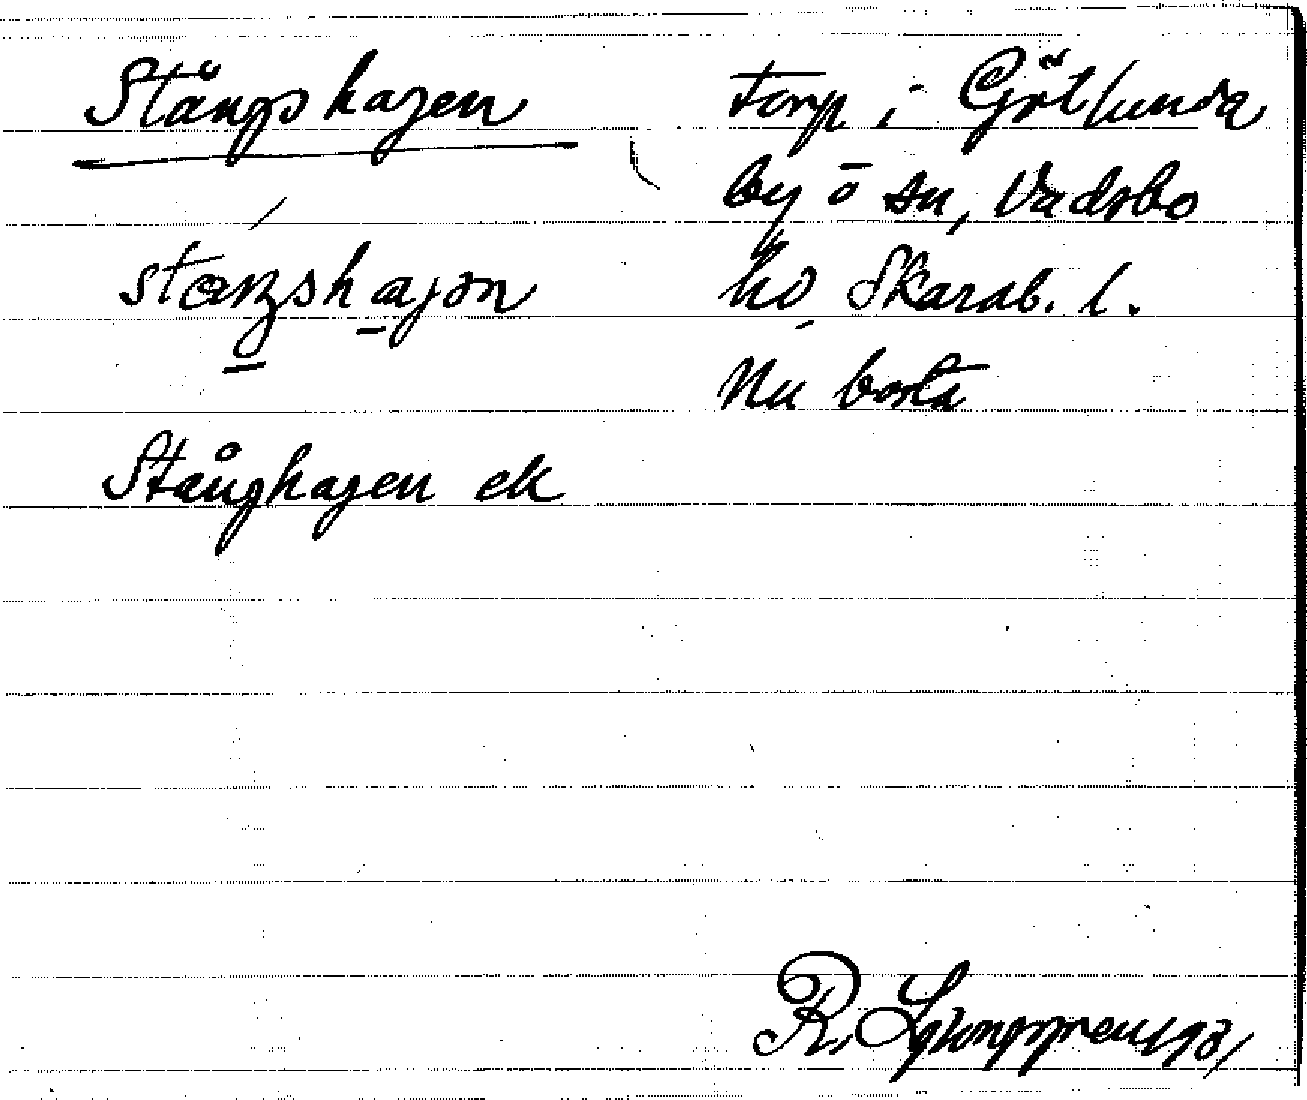 Stängshagen
Torp i Götlunda
by o sn, Vadsbo
hd Skarab. l.
Nu borta
Stånghagen ek
R. Ljunggren 1931